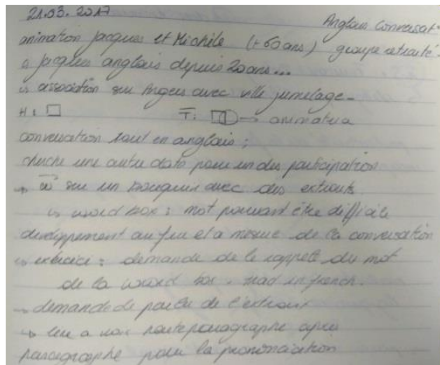 21.03.2017
Anglais conversat.
animation Jacques et Michèle (+60ans) groupe retraité
Jacques anglais depuis 20ans...
association sur Angers avec ville jumelage-
H: T: → animateur
conversation tout en anglais;
cherche une autre date pour un des participation
→ sur un bouquin avec des extraits
↳ word box: mot pouvant être difficile
développement au fur et a mesure de la conversation
↳ exercice: demande de le rappelé du mot
de la word box - trad in french.
→ demande de parler de l'extrait
↳ lu a voix haute paragraphe après
paragraphe pour la prononciation